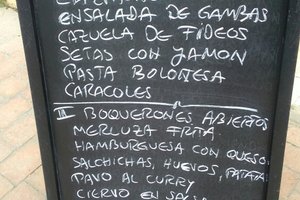 ENSALADA DE GAMBAS
CAZUELA DE FIDEOS
SETAS CON JAMON
PASTA BOLONESA
CARACOLES
II BOQUERONES ABIERTOS
MERLUZA FRITA
HAMBURGUESA CON QUESO
SALCHICHAS, HUEVOS, PATATA
PAVO AL CURRY
CIERVO EN SALSA